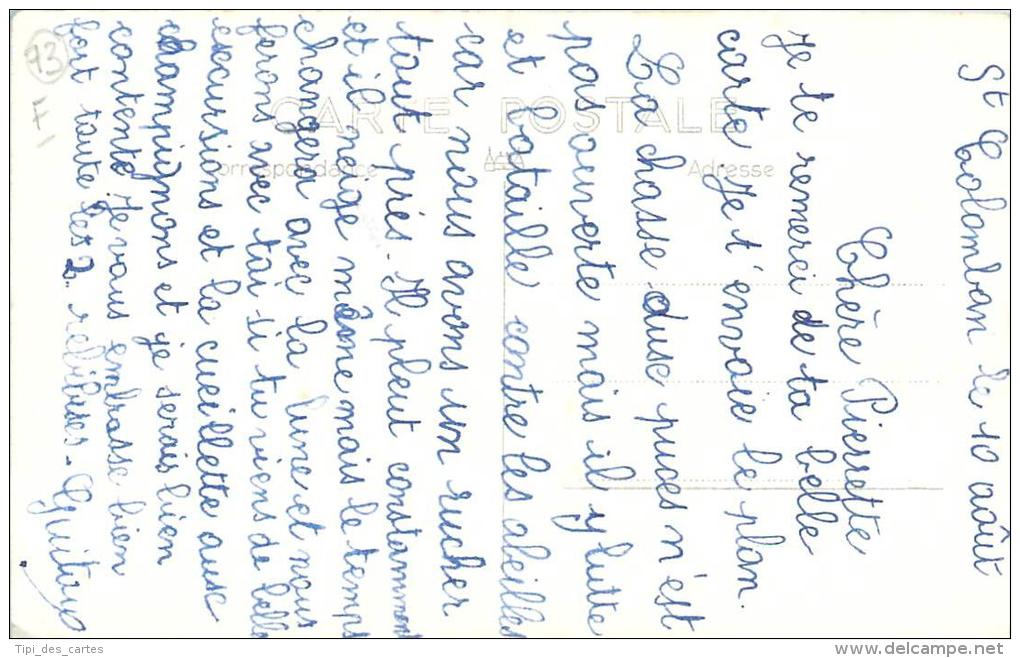 St Colomban le 10 août
Chère Pierrette
Je te remerci de ta belle
carte. Je t'envoie le plan.
La chasse ausc puces n'est
pas ouverte mais il y lutte
et bataille contre les abeilles
car nous avons un rucher
tout près. Il pleut constamment
et il neige même mais le temps
changera avec la lune et nous
ferons avec toi si tu viens de belle
excursions et la cueillette ausc
champignons et je serais bien
contente Je vous embrasse bien
fort toute les 2.
CARTE POSTALE
Correspondance
Adresse
73
F
Tipi_des_cartes
delcampe.net